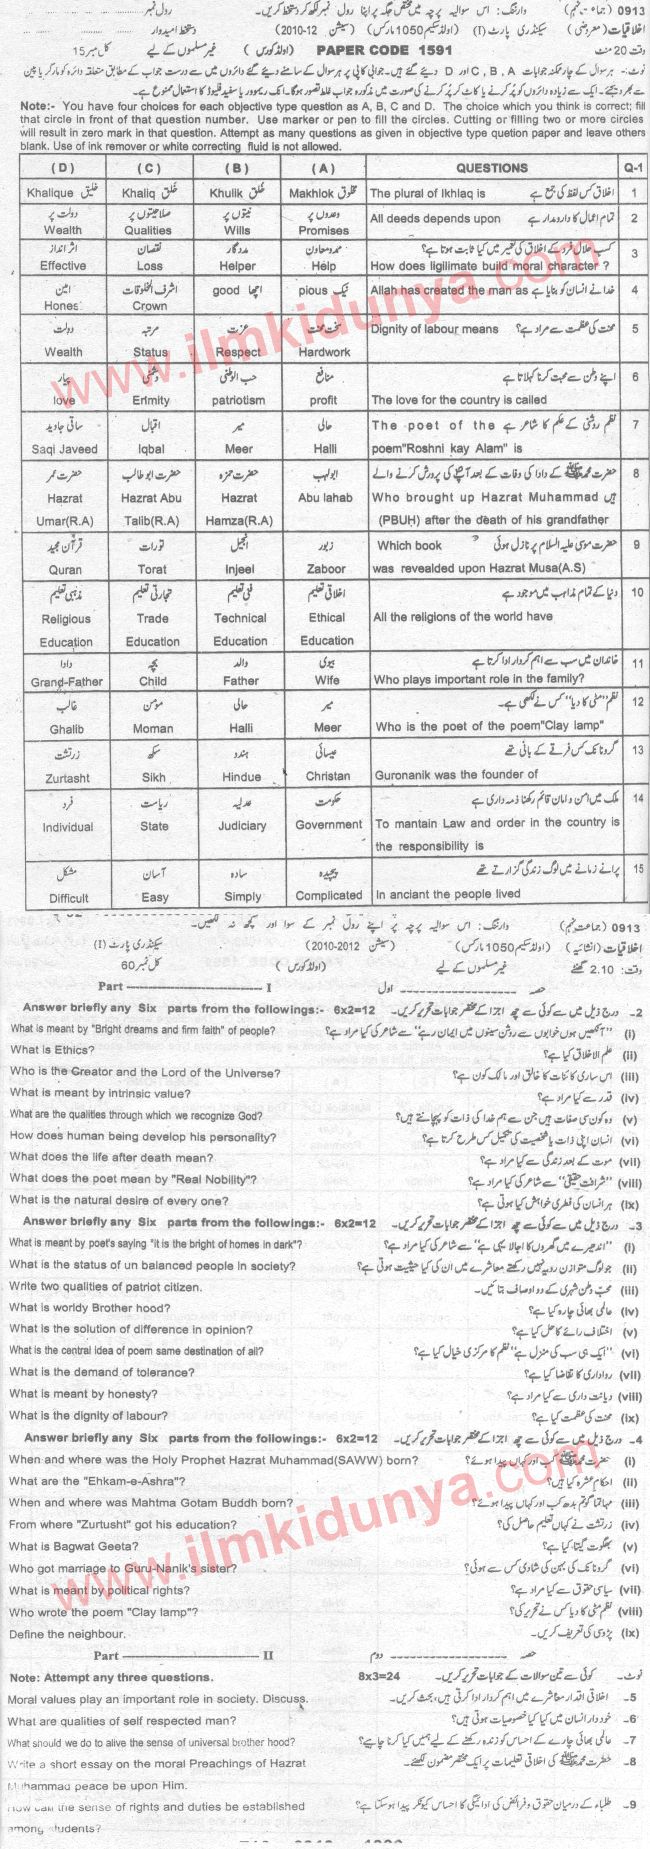 0913 (جماعت نہم) وارننگ: اس سوالیہ پرچہ میں مختص جگہ پر اپنا رول نمبر لکھ کر دستخط کریں۔ رول نمبر
اخلاقیات (معروضی) سیکنڈری پارٹ (I) (اولڈ سکیم 1050 مارکس) (سیشن 12-2010) دستخط امیدوار
وقت 20 منٹ PAPER CODE 1591 (اولڈ کورس) غیر مسلموں کے لیے کل نمبر 15
Note:- You have four choices for each objective type question as A, B, C and D. The choice which you think is correct; fill
that circle in front of that question number. Use marker or pen to fill the circles. Cutting or filling two or more circles
will result in zero mark in that question. Attempt as many questions as given in objective type quetion paper and leave others
blank. Use of ink remover or white correcting fluid is not allowed.
(D) (C) (B) (A) QUESTIONS Q-1
خلیق Khalique خَلق Khaliq خُلق Khulik مخلوق Makhlok The plural of Ikhlaq is اخلاق کس لفظ کی جمع ہے 1
دولت پر صلاحیتوں پر نیتوں پر وعدوں پر تمام اعمال کا دارومدار ہے 2
Wealth Qualities Wills Promises All deeds depends upon
اثر انداز نقصان مددگار ممدومعاون کسب حلال فرد کے اخلاق کی تعمیر میں کیا ثابت ہوتا ہے؟ 3
Effective Loss Helper Help How does ligilimate build moral character ?
امین اشرف المخلوقات اچھا good نیک pious Allah has created the man as خدا نے انسان کو بنایا ہے 4
Hones Crown
دولت مرتبہ عزت سخت محنت Dignity of labour means محنت کی عظمت سے مراد ہے؟ 5
Wealth Status Respect Hardwork
پیار دشمنی حب الوطنی منافع اپنے وطن سے محبت کرنا کہلاتا ہے 6
love Erimity patriotism profit The love for the country is called
ساقی جاوید اقبال میر حالی The poet of the نظم روشنی کے علم کا شاعر ہے 7
Saqi Javeed Iqbal Meer Halli poem"Roshni kay Alam" is
حضرت عمر حضرت ابو طالب حضرت حمزہ ابولہب حضرت محمدﷺ کے دادا کی وفات کے بعد آپؐ کی پرورش کرنے والے 8
Hazrat Hazrat Abu Hazrat Abu lahab Who brought up Hazrat Muhammad ہیں
Umar(R.A) Talib(R.A) Hamza(R.A) (PBUH) after the death of his grandfather
قرآن مجید تورات انجیل زبور Which book حضرت موسیٰ علیہ السلام پر نازل ہوئی 9
Quran Torat Injeel Zaboor was revealded upon Hazrat Musa(A.S)
مذہبی تعلیم تجارتی تعلیم فنی تعلیم اخلاقی تعلیم دنیا کے تمام مذاہب میں موجود ہے 10
Religious Trade Technical Ethical All the religions of the world have
Education Education Education Education
دادا بچہ والد بیوی خاندان میں سب سے اہم کردار ادا کرتا ہے 11
Grand-Father Child Father Wife Who plays important role in the family?
غالب مومن حالی میر نظم "مٹی کا دیا" کس نے لکھی ہے۔ 12
Ghalib Moman Halli Meer Who is the poet of the poem"Clay lamp"
زرتشت سکھ ہندو عیسائی گرونانک کس فرقے کے بانی تھے 13
Zurtasht Sikh Hindue Christan Guronanik was the founder of
فرد ریاست عدلیہ حکومت ملک میں امن و امان قائم رکھنا ذمہ داری ہے 14
Individual State Judiciary Government To mantain Law and order in the country is
the responsibility is
مشکل آسان سادہ پیچیدہ پرانے زمانے میں لوگ زندگی گزارتے تھے 15
Difficult Easy Simply Complicated In anciant the people lived
0913 (جماعت نہم) وارننگ: اس سوالیہ پرچہ پر اپنے رول نمبر کے سوا اور کچھ نہ لکھیں۔
اخلاقیات (انشائیہ) (اولڈ سکیم 1050 مارکس) (سیشن 2012-2010) سیکنڈری پارٹ (I)
وقت: 2.10 گھنٹے غیر مسلموں کے لیے (اولڈ کورس) کل نمبر 60
Part I حصہ اول
Answer briefly any Six parts from the followings:- 6x2=12 درج ذیل میں سے کوئی سے چھ اجزا کے مختصر جوابات تحریر کریں۔ 2-
What is meant by "Bright dreams and firm faith" of people? "آنکھیں ہوں خوابوں سے روشن سینوں میں ایمان رہے" سے شاعر کی کیا مراد ہے؟ (i)
What is Ethics? علم الاخلاق کیا ہے؟ (ii)
Who is the Creator and the Lord of the Universe? اس ساری کائنات کا خالق اور مالک کون ہے؟ (iii)
What is meant by intrinsic value? قدر سے کیا مراد ہے؟ (iv)
What are the qualities through which we recognize God? وہ کون سی صفات ہیں جن سے ہم خدا کی ذات کو پہچانتے ہیں؟ (v)
How does human being develop his personality? انسان اپنی ذات یا شخصیت کی تکمیل کس طرح کرتا ہے؟ (vi)
What does the life after death mean? موت کے بعد زندگی سے کیا مراد ہے؟ (vii)
What does the poet mean by "Real Nobility"? "شرافت حقیقی" سے شاعر کی کیا مراد ہے؟ (viii)
What is the natural desire of every one? ہر انسان کی فطری خواہش کیا ہوتی ہے؟ (ix)
Answer briefly any Six parts from the followings:- 6x2=12 درج ذیل میں سے کوئی سے چھ اجزا کے مختصر جوابات تحریر کریں۔ 3-
What is meant by poet's saying "it is the bright of homes in dark"? "اندھیرے میں گھروں کا اجالا یہی ہے" سے شاعر کی کیا مراد ہے؟ (i)
What is the status of un balanced people in society? جو لوگ متوازن رویہ نہیں رکھتے معاشرے میں ان کی کیا حیثیت ہوتی ہے؟ (ii)
Write two qualities of patriot citizen. محبِ وطن شہری کے دو اوصاف بتائیں۔ (iii)
What is worldy Brother hood? عالمی بھائی چارہ کیا ہے؟ (iv)
What is the solution of difference in opinion? اختلاف رائے کا حل کیا ہے؟ (v)
What is the central idea of poem same destination of all? "ایک ہی سب کی منزل ہے" نظم کا مرکزی خیال کیا ہے؟ (vi)
What is the demand of tolerance? رواداری کا تقاضا کیا ہے؟ (vii)
What is meant by honesty? دیانت داری سے کیا مراد ہے؟ (viii)
What is the dignity of labour? محنت کی عظمت کیا ہے؟ (ix)
Answer briefly any Six parts from the followings:- 6x2=12 درج ذیل میں سے کوئی سے چھ اجزا کے مختصر جوابات تحریر کریں۔ 4-
When and where was the Holy Prophet Hazrat Muhammad(SAWW) born? حضرت محمدﷺ کب اور کہاں پیدا ہوئے؟ (i)
What are the "Ehkam-e-Ashra"? احکام عشرہ کیا ہیں؟ (ii)
When and where was Mahtma Gotam Buddh born? مہاتما گوتم بدھ کب اور کہاں پیدا ہوئے؟ (iii)
From where "Zurtusht" got his education? زرتشت نے کہاں تعلیم حاصل کی؟ (iv)
What is Bagwat Geeta? بھگوت گیتا کیا ہے؟ (v)
Who got marriage to Guru-Nanik's sister? گرونانک کی بہن کی شادی کس سے ہوئی؟ (vi)
What is meant by political rights? سیاسی حقوق سے کیا مراد ہے؟ (vii)
Who wrote the poem "Clay lamp"? نظم مٹی کا دیا کس نے تحریر کی؟ (viii)
Define the neighbour. پڑوسی کی تعریف کریں۔ (ix)
Part II حصہ دوم
Note: Attempt any three questions. 8x3=24 نوٹ۔ کوئی سے تین سوالات کے جوابات تحریر کریں۔
Moral values play an important role in society. Discuss. اخلاقی اقدار معاشرے میں اہم کردار ادا کرتی ہیں، بحث کریں۔ 5-
What are qualities of self respected man? خوددار انسان میں کیا کیا خصوصیات ہوتی ہیں؟ 6-
What should we do to alive the sense of universal brother hood? عالمی بھائی چارے کے احساس کو زندہ رکھنے کے لیے ہمیں کیا کرنا چاہیے؟ 7-
Write a short essay on the moral Preachings of Hazrat حضرت محمدﷺ کی اخلاقی تعلیمات پر ایک مختصر مضمون لکھیے۔ 8-
Muhammad peace be upon Him.
How can the sense of rights and duties be established طلباء کے درمیان حقوق و فرائض کی ادائیگی کا احساس کیونکر پیدا ہو سکتا ہے؟ 9-
among students?
www.ilmkidunya.com
www.ilmkidunya.com